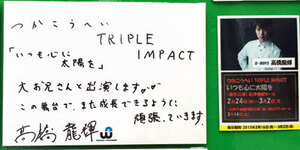 つかこうへい
TRIPLE
IMPACT
「いつも心に
太陽を」
大お兄さんと出演しますが
この舞台で、また成長できるように
頑張っていきます。
高橋龍輝
D-BOYS 高橋龍輝
つかこうへい TRIPLE IMPACT
いつも心に太陽を
2月24日(火)-3月2日(月)